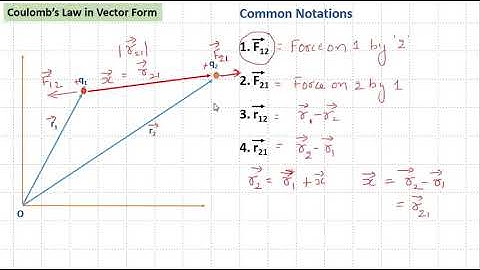 Coulomb's Law in Vector Form
Common Notations
|r⃗21|
x⃗ = r⃗21
F⃗12
+q1
+q2
F⃗21
r⃗1
r⃗2
O
1. F⃗12 = Force on 1 by '2'
2. F⃗21 = Force on 2 by 1
3. r⃗12 = r⃗1 - r⃗2
4. r⃗21 = r⃗2 - r⃗1
r⃗2 = r⃗1 + x⃗
x⃗ = r⃗2 - r⃗1
= r⃗21